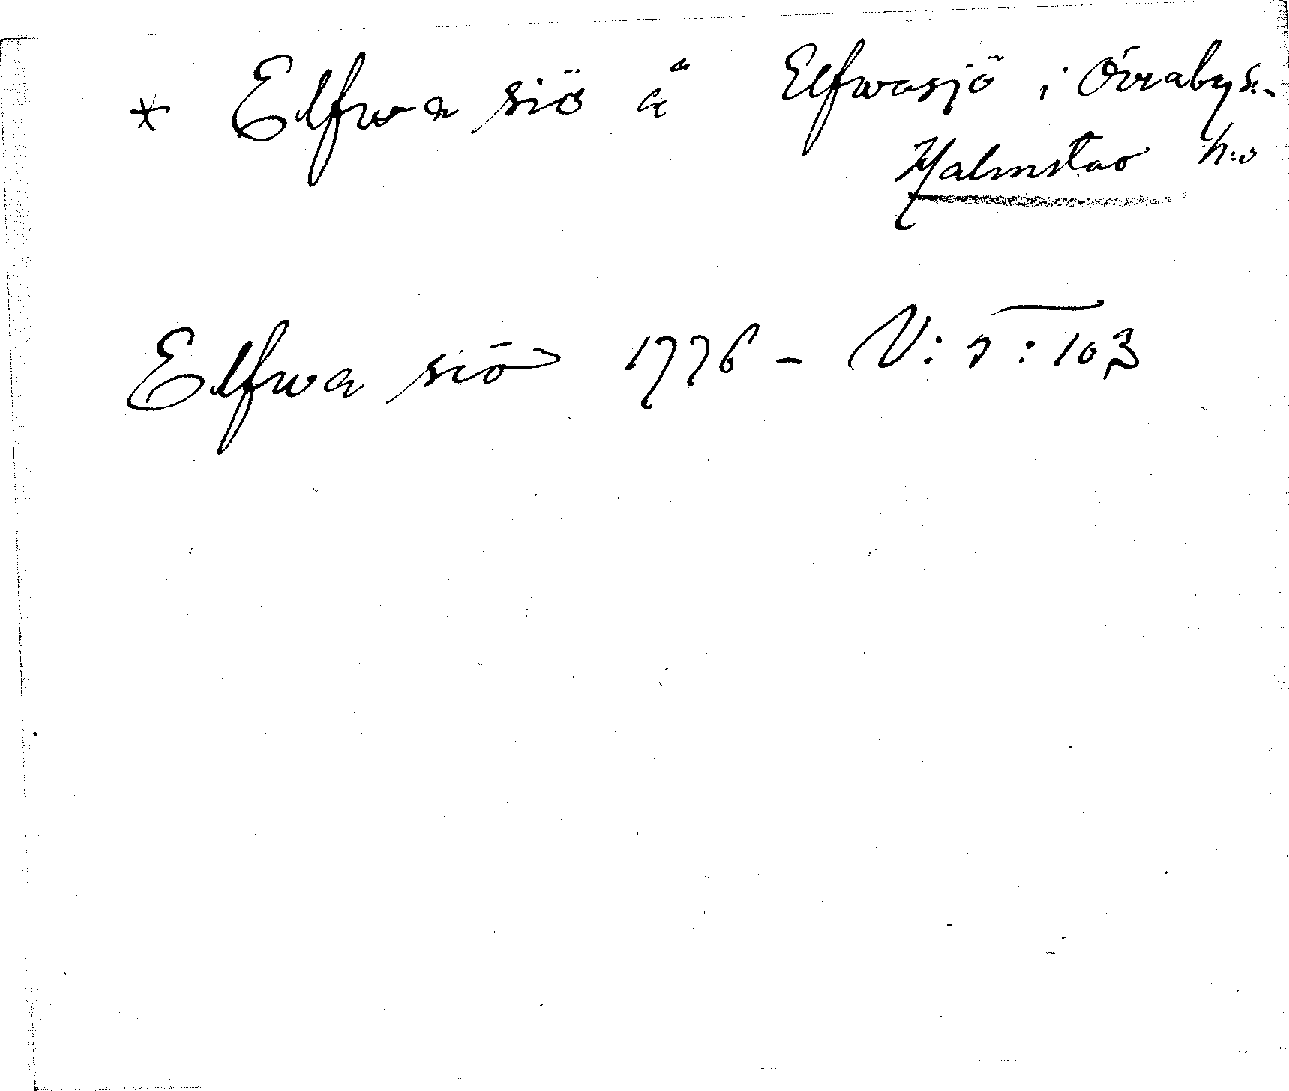 * Elfwa siö å Elfwasjö i Övraby s:n
Halmstad h:d
Elfwa siö 1776 - V: 5 : 103